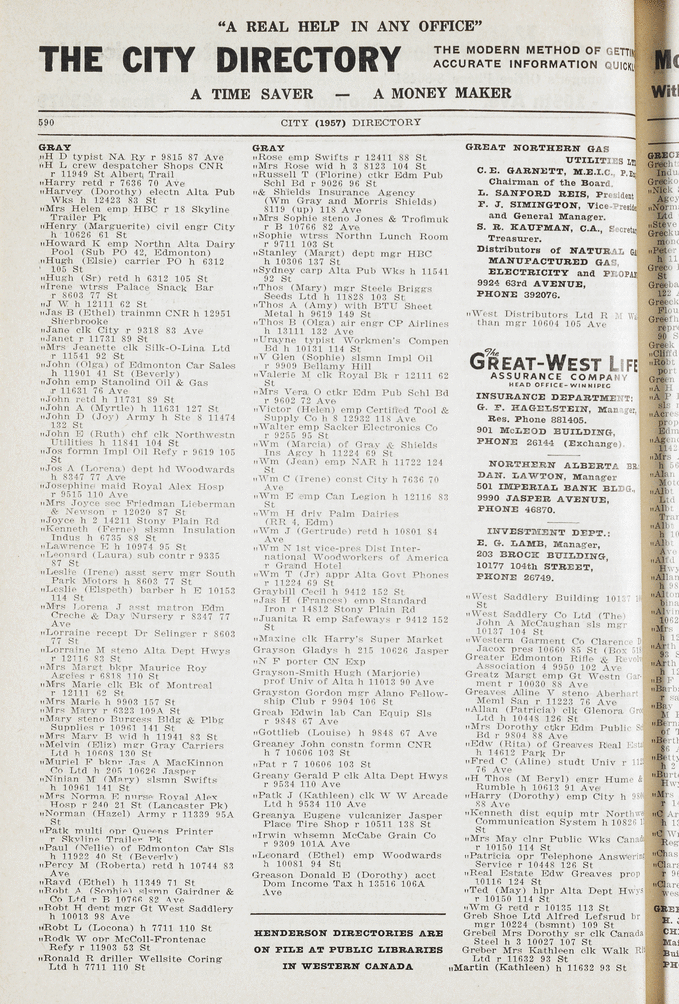 "A REAL HELP IN ANY OFFICE"
THE CITY DIRECTORY
THE MODERN METHOD OF
ACCURATE INFORMATION
A TIME SAVER — A MONEY MAKER
590
CITY (1957) DIRECTORY
GRAY
„H D typist NA Ry r 9815 87 Ave
„H L crew despatcher Shops CNR
r 11949 St Albert Trail
„Harry retd r 7636 70 Ave
„Harvey (Dorothy) electn Alta Pub
Wks h 12423 83 St
„Mrs Helen emp HBC r 18 Skyline
Trailer Pk
„Henry (Marguerite) civil engr City
h 10626 61 St
„Howard K emp Northn Alta Dairy
Pool (Sub PO 42, Edmonton)
„Hugh (Elsie) carrier PO h 6312
105 St
„Hugh (Sr) retd h 6312 105 St
„Irene wtrss Palace Snack Bar
r 8603 77 St
„J W h 12111 62 St
„Jas B (Ethel) trainmn CNR h 12951
Sherbrooke
„Jane clk City r 9318 83 Ave
„Janet r 11731 89 St
„Mrs Jeanette clk Silk-O-Lina Ltd
r 11541 92 St
„John (Olga) of Edmonton Car Sales
h 11901 41 St (Beverly)
„John emp Stanolind Oil & Gas
r 11631 76 Ave
„John retd h 11731 89 St
„John A (Myrtle) h 11631 127 St
„John D (Joy) Army h Ste 8 11474
132 St
„John E (Ruth) chf clk Northwestn
Utilities h 11841 104 St
„Jos formn Impl Oil Refy r 9619 105
St
„Jos A (Lorena) dept hd Woodwards
h 8347 77 Ave
„Josephine maid Royal Alex Hosp
r 9515 110 Ave
„Mrs Joyce sec Friedman Lieberman
& Newson r 12020 87 St
„Joyce h 2 14211 Stony Plain Rd
„Kenneth (Ferne) slsmn Insulation
Indus h 6735 88 St
„Lawrence E h 10974 95 St
„Leonard (Laura) sub contr r 9335
87 St
„Leslie (Irene) asst serv mgr South
Park Motors h 8603 77 St
„Leslie (Elspeth) barber h E 10153
114 St
„Mrs Lorena J asst matron Edm
Creche & Day Nursery r 8347 77
Ave
„Lorraine recept Dr Selinger r 8603
77 St
„Lorraine M steno Alta Dept Hwys
r 12116 83 St
„Mrs Margt bkpr Maurice Roy
Agcies r 6818 110 St
„Mrs Marie clk Bk of Montreal
r 12111 62 St
„Mrs Marie h 9903 157 St
„Mrs Mary r 6323 109A St
„Mary steno Burgess Bldg & Plbg
Supplies r 10961 141 St
„Mrs Mary B wid h 11941 83 St
„Melvin (Eliz) mgr Gray Carriers
Ltd h 10608 130 St
„Muriel F bkpr Jas A MacKinnon
Co Ltd h 205 10626 Jasper
„Ninian M (Mary) slsmn Swifts
h 10961 141 St
„Mrs Norma E nurse Royal Alex
Hosp r 240 21 St (Lancaster Pk)
„Norman (Hazel) Army r 11339 95A
St
„Patk multi opr Queens Printer
r Skyline Trailer Pk
„Paul (Nellie) of Edmonton Car Sls
h 11922 40 St (Beverly)
„Percy M (Roberta) retd h 10744 83
Ave
„Rayd (Ethel) h 11349 71 St
„Robt A (Sophie) slsmn Gairdner &
Co Ltd r B 10766 82 Ave
„Robt H dept mgr Gt West Saddlery
h 10013 98 Ave
„Robt L (Locona) h 7711 110 St
„Rodk W opr McColl-Frontenac
Refy r 11903 53 St
„Ronald R driller Wellsite Coring
Ltd h 7711 110 St
GRAY
„Rose emp Swifts r 12411 88 St
„Mrs Rose wid h 3 8123 104 St
„Mrs Russel T (Florine) ctkr Edm Pub
Schl Bd r 9026 96 St
„& Shields Insurance Agency
(Wm Gray and Morris Shields)
8119 (up) 118 Ave
„Mrs Sophie steno Jones & Trofimuk
r B 10766 82 Ave
„Sophie wtrss Northn Lunch Room
r 9711 103 St
„Stanley (Margt) dept mgr HBC
h 10306 137 St
„Sydney carp Alta Pub Wks h 11541
92 St
„Thos (Mary) mgr Steele Briggs
Seeds Ltd h 11828 103 St
„Thos A (Amy) with BTU Sheet
Metal h 9619 149 St
„Thos B (Olga) air engr CP Airlines
h 13111 132 Ave
„Urayne typist Workmen's Compen
Bd h 10131 114 St
„V Glen (Sophie) slsmn Impl Oil
r 9909 Bellamy Hill
„Valerie M clk Royal Bk r 12111 62
St
„Mrs Vera O ctkr Edm Pub Schl Bd
r 9602 72 Ave
„Victor (Helen) emp Certified Tool &
Supply Co h 8 12932 118 Ave
„Walter emp Sacker Electronics Co
r 9255 95 St
„Wm (Marcia) of Gray & Shields
Ins Agcy h 11224 69 St
„Wm (Jean) emp NAR h 11722 124
St
„Wm C (Irene) const City h 7636 70
Ave
„Wm E emp Can Legion h 12116 83
St
„Wm H driv Palm Dairies
(RR 4, Edm)
„Wm J (Gertrude) retd h 10801 84
Ave
„Wm N 1st vice-pres Dist Inter-
national Woodworkers of America
r Grand Hotel
„Wm T (Jr) appr Alta Govt Phones
r 11224 69 St
Graybill Cecil h 9412 152 St
„Jas H (Frances) emp Standard
Iron r 14812 Stony Plain Rd
„Juanita R emp Safeways r 9412 152
St
„Maxine clk Harry's Super Market
Grayson Gladys h 215 10626 Jasper
„N F porter CN Exp
Grayson-Smith Hugh (Marjorie)
prof Univ of Alta h 11012 90 Ave
Grayston Gordon mgr Alano Fellow-
ship Club r 9904 106 St
Greab Edwin lab Can Equip Sls
r 9848 67 Ave
„Gottlieb (Louise) h 9848 67 Ave
Greaney John constn formn CNR
h 7 10606 103 St
„Pat r 7 10606 103 St
Greany Gerald P clk Alta Dept Hwys
r 9534 110 Ave
„Patk J (Kathleen) clk W W Arcade
Ltd h 9534 110 Ave
Greanya Eugene vulcanizer Jasper
Place Tire Shop r 10511 138 St
„Irwin whsemn McCabe Grain Co
r 9309 101A Ave
„Leonard (Ethel) emp Woodwards
h 10081 94 St
Greason Donald E (Dorothy) acct
Dom Income Tax h 13516 106A
Ave
HENDERSON DIRECTORIES ARE
ON FILE AT PUBLIC LIBRARIES
IN WESTERN CANADA
GREAT NORTHERN GAS
UTILITIES
C. E. GARNETT, M.E.I.C.,
Chairman of the Board.
L. SANFORD REIS, President
F. J. SIMPSON,
and General Manager.
S. R. KAUFMAN, C.A.,
Treasurer.
Distributors of NATURAL
MANUFACTURED GAS,
ELECTRICITY and
9924 63rd AVENUE,
PHONE 392076.
„West Distributors Ltd R M
than mgr 10604 105 Ave
The
GREAT-WEST LIFE
ASSURANCE COMPANY
HEAD OFFICE-WINNIPEG
INSURANCE DEPARTMENT:
G. F. HAGELSTEIN, Manager,
Res. Phone 881405.
901 McLEOD BUILDING,
PHONE 26144 (Exchange).
NORTHERN ALBERTA
DAN. LAWTON, Manager
501 IMPERIAL BANK BLDG.,
9990 JASPER AVENUE,
PHONE 46870.
INVESTMENT DEPT.:
E. G. LAMB, Manager,
203 BROCK BUILDING,
10177 104th STREET,
PHONE 26749.
„West Saddlery Building 10137
St
„West Saddlery Co Ltd (The)
John A McCaughan sls mgr
10137 104 St
„Western Garment Co Clarence
Jacox pres 10660 85 St (Box
Greater Edmonton Rifle &
Association 4 9950 102 Ave
Greatz Margt emp Gt Westn
ment r 10030 88 Ave
Greaves Aline V steno Aberhart
Meml San r 11223 76 Ave
„Allan (Patricia) clk Glenora
Ltd h 10448 126 St
„Mrs Dorothy ctkr Edm Public
Bd r 9804 88 Ave
„Edw (Rita) of Greaves Real
h 14612 Park Dr
„Fred C (Aline) studt Univ r
76 Ave
„H Thos (M Beryl) engr Hume &
Rumble h 10613 91 Ave
„Harry (Dorothy) emp City h
88 Ave
„Kenneth dist equip mtr
Communication System h 10826
St
„Mrs May clnr Public Wks
r 10150 114 St
„Patricia opr Telephone Answering
Service r 10448 126 St
„Real Estate Edw Greaves prop
10116 124 St
„Ted (May) hlpr Alta Dept
r 10150 114 St
„Wm G retd r 10135 113 St
Greb Shoe Ltd Alfred Lefsrud
mgr 10224 (bsmnt) 109 St
Grebel Mrs Dorothy sr clk Canada
Steel h 3 10027 107 St
Greber Mrs Kathleen clk Walk
Ltd r 11632 93 St
„Martin (Kathleen) h 11632 93 St